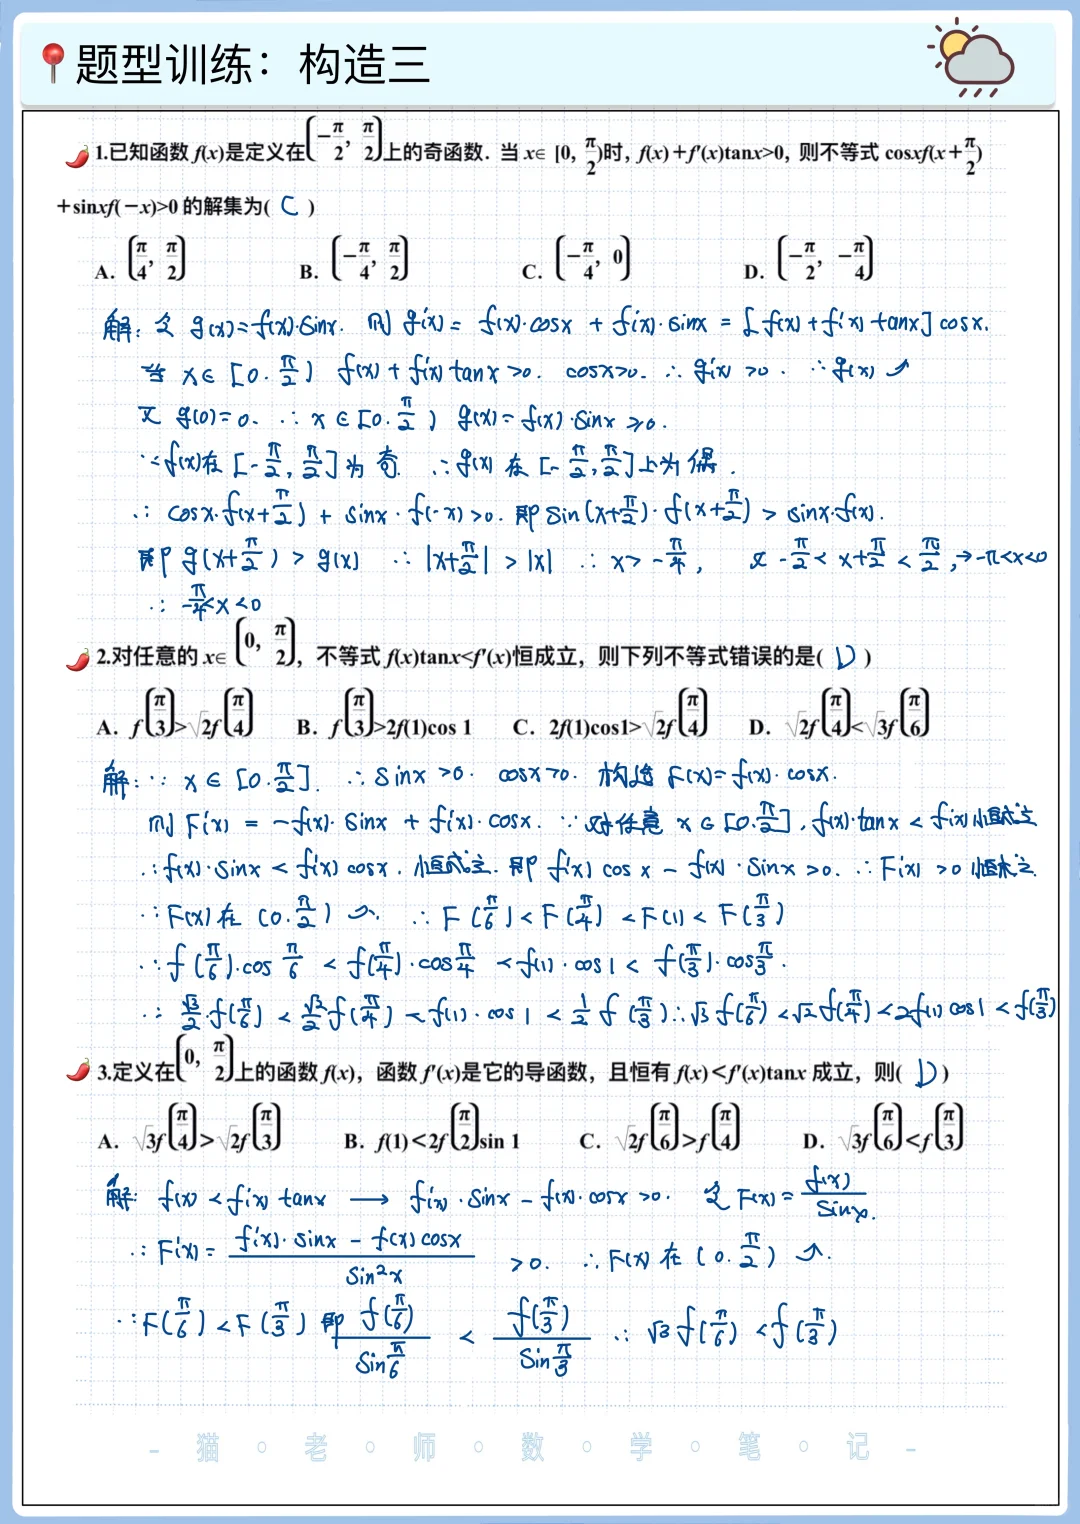 题型训练：构造三
1.已知函数 f(x)是定义在(-π/2, π/2)上的奇函数. 当 x∈ [0, π/2)时, f(x)+f′(x)tanx>0, 则不等式 cosxf(x+π/2)
+sinxf(-x)>0 的解集为( C )
A. (π/4, π/2) B. (-π/4, π/2) C. (-π/4, 0) D. (-π/2, -π/4)
解: 令 g(x)=f(x)·sinx. 则 g′(x)= f(x)·cosx + f′(x)·sinx = [f(x)+f′(x)tanx]cosx.
当 x∈[0.π/2) f(x)+f′(x)tanx>0. cosx>0. ∴g′(x)>0. ∴g(x)↗
又 g(0)=0. ∴ x∈[0.π/2) g(x)=f(x)·sinx≥0.
∵f(x)在[-π/2,π/2]为奇. ∴g(x)在[-π/2,π/2]上为偶.
∴ cosx·f(x+π/2)+sinx·f(-x)>0. 即 sin(x+π/2)·f(x+π/2)>sinx·f(x).
即 g(x+π/2)>g(x) ∴|x+π/2|>|x| ∴x>-π/4, 又-π/2<x+π/2<π/2,→-π<x<0
∴ -π/4<x<0
2.对任意的 x∈(0, π/2), 不等式 f(x)tanx<f′(x)恒成立, 则下列不等式错误的是( D )
A. f(π/3)>√2f(π/4) B. f(π/3)>2f(1)cos 1 C. 2f(1)cos1>√2f(π/4) D. √2f(π/4)<√3f(π/6)
解: ∵ x∈[0.π/2]. ∴sinx>0. cosx>0. 构造 F(x)=f(x)·cosx.
则 F′(x) = -f(x)·sinx + f′(x)·cosx. ∵对任意 x∈[0.π/2], f(x)·tanx<f′(x)恒成立
∴f(x)·sinx<f′(x)cosx. 恒成立. 即 f′(x)cosx-f(x)·sinx>0. ∴F′(x)>0恒成立.
∴F(x)在(0.π/2)↗. ∴F(π/6)<F(π/4)<F(1)<F(π/3)
∴f(π/6)·cosπ/6 < f(π/4)·cosπ/4 <f(1)·cos1< f(π/3)·cosπ/3.
∴ √3/2·f(π/6)<√2/2f(π/4)<f(1)·cos1<1/2f(π/3)∴√3f(π/6)<√2f(π/4)<2f(1)cos1<f(π/3)
3.定义在(0, π/2)上的函数 f(x), 函数 f′(x)是它的导函数, 且恒有 f(x)<f′(x)tanx 成立, 则( D )
A. √3f(π/4)>√2f(π/3) B. f(1)<2f(π/2)sin 1 C. √2f(π/6)>f(π/4) D. √3f(π/6)<f(π/3)
解: f(x)<f′(x)tanx → f′(x)·sinx-f(x)·cosx>0. 令 F(x)=f(x)/sinx.
∴F′(x)= (f′(x)·sinx-f(x)cosx)/sin²x >0. ∴F(x)在(0.π/2)↗.
∴F(π/6)<F(π/3) 即 f(π/6)/sinπ/6 < f(π/3)/sinπ/3 ∴ √3f(π/6)<f(π/3)
- 猫 · 老 · 师 · 数 · 学 · 笔 · 记 -